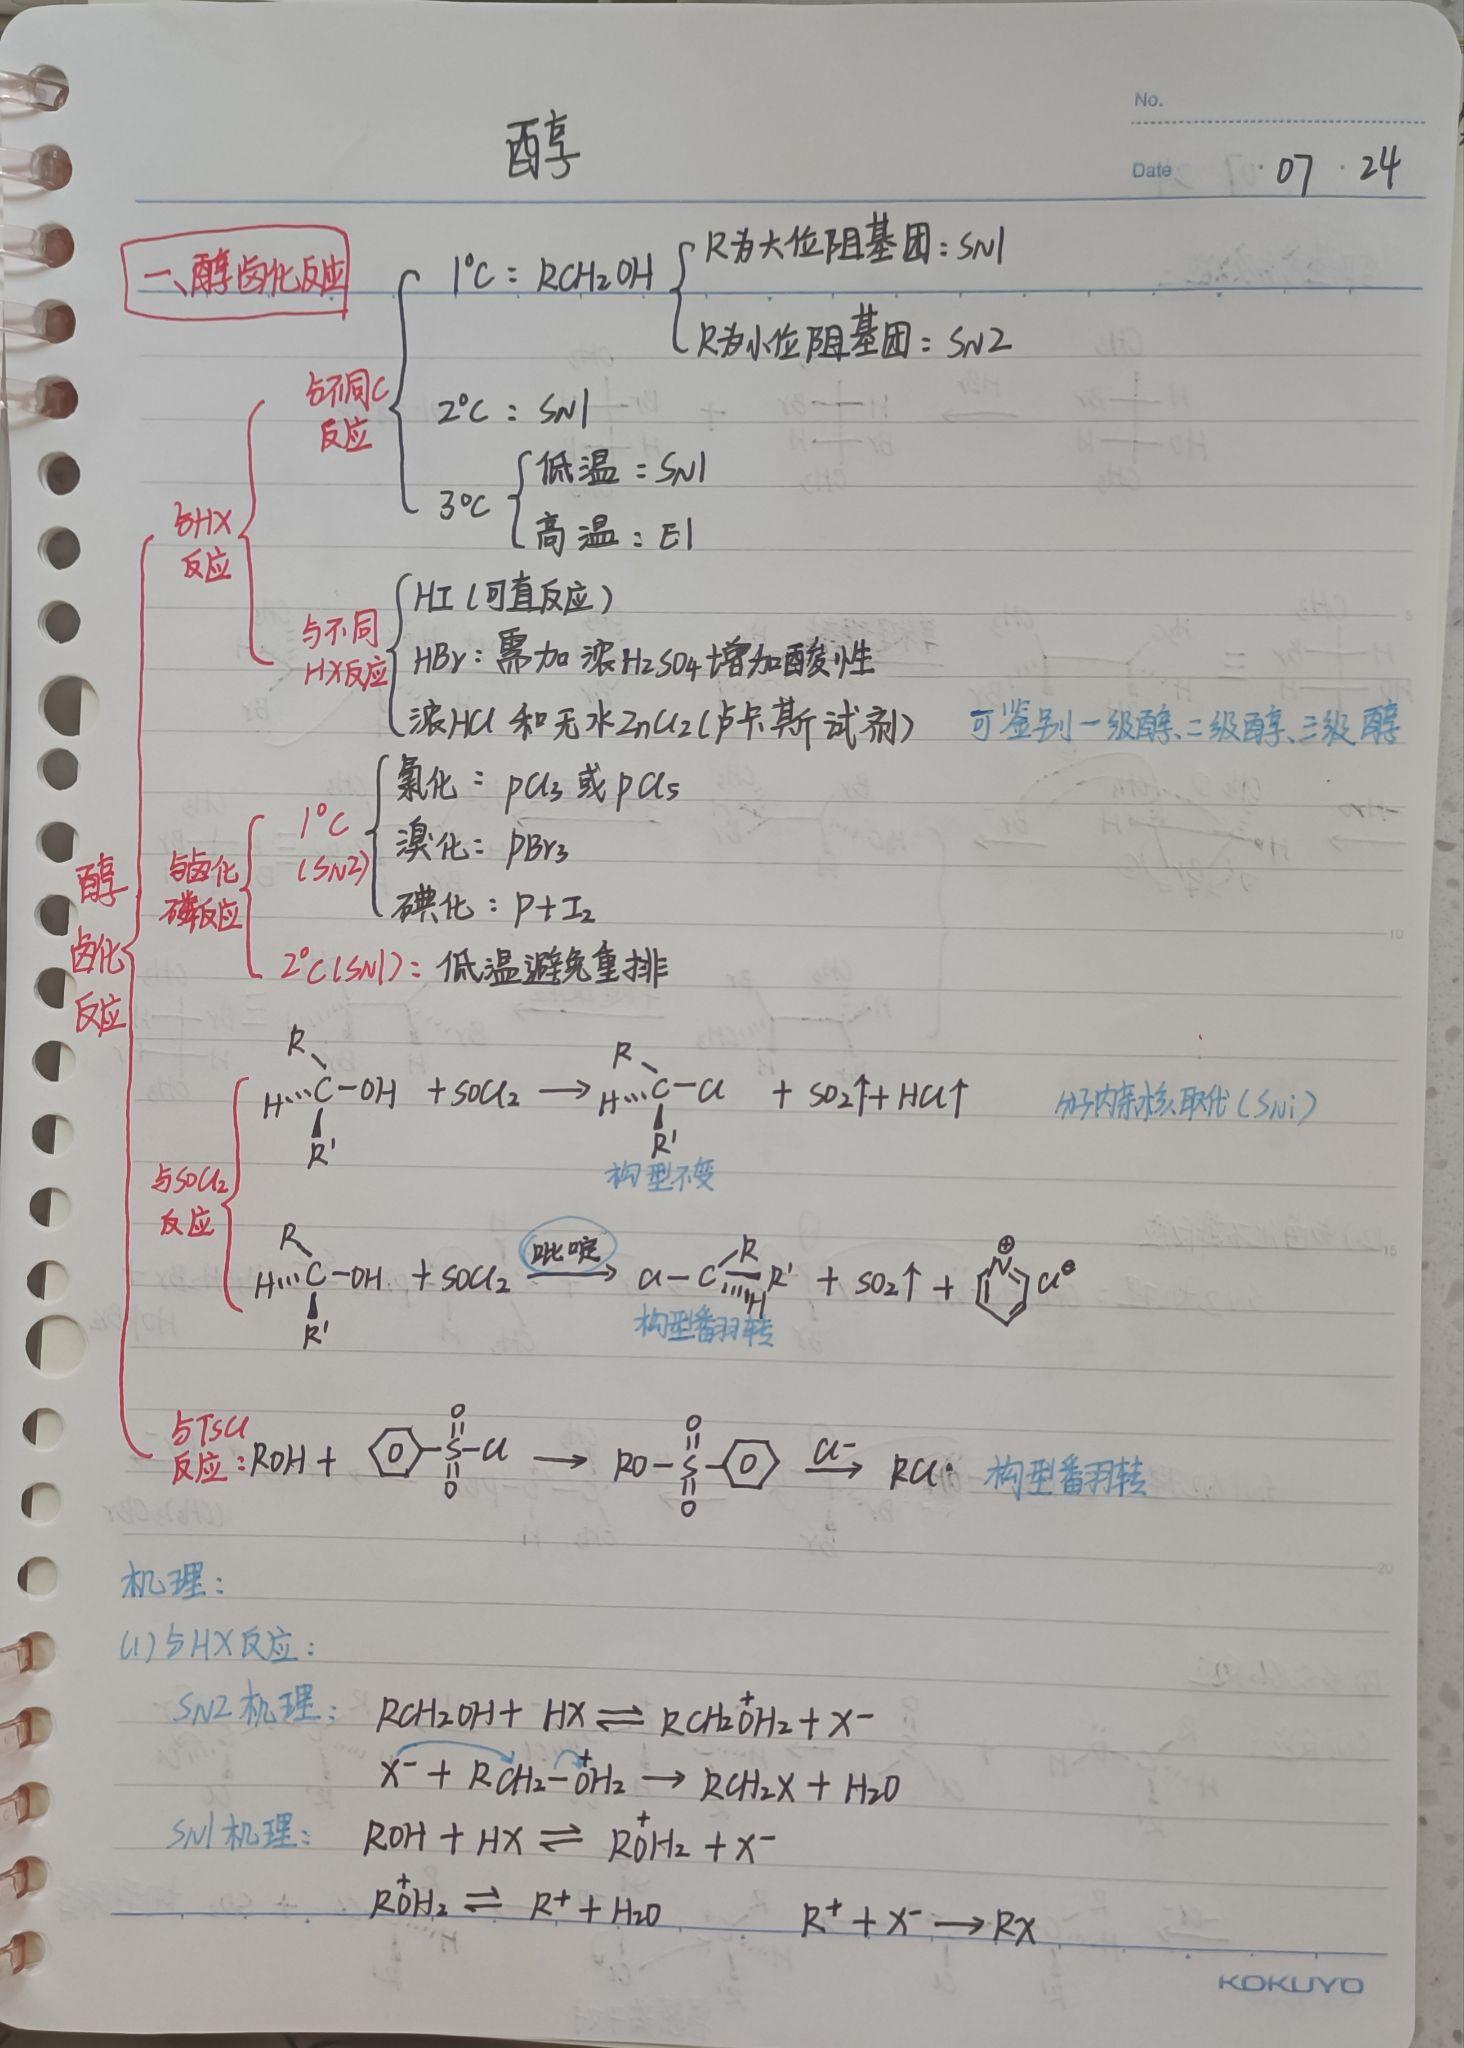 No.
醇
Date 07 · 24
一、醇卤化反应
1°C：RCH2OH
R为大位阻基团：SN1
R为小位阻基团：SN2
与不同C
反应
2°C：SN1
3°C
低温：SN1
高温：E1
与HX
反应
与不同
HX反应
HI（可直反应）
HBr：需加浓H2SO4增加酸性
浓HCl 和无水ZnCl2（卢卡斯试剂） 可鉴别一级醇、二级醇、三级醇
醇
卤化
反应
与卤化
磷反应
1°C
(SN2)
氯化：PCl3或PCl5
溴化：PBr3
碘化：P+I2
2°C(SN1)：低温避免重排
与SOCl2
反应
R
H C-OH + SOCl2 → R
H C-Cl + SO2↑+HCl↑ 分子内亲核取代（SNi）
R' R'
构型不变
R
H C-OH + SOCl2 吡啶 → Cl-C R R' H + SO2↑ + N⊕ Cl⊖
R'
构型翻转
与TsCl
反应：ROH + O S O Cl → RO-S O O Cl- → RCl 构型翻转
机理：
(1)与HX反应：
SN2机理：RCH2OH + HX ⇌ RCH2O+H2 + X-
X- + RCH2-O+H2 → RCH2X + H2O
SN1机理：ROH + HX ⇌ RO+H2 + X-
RO+H2 ⇌ R+ + H2O R+ + X- → RX
5
10
15
20
KOKUYO